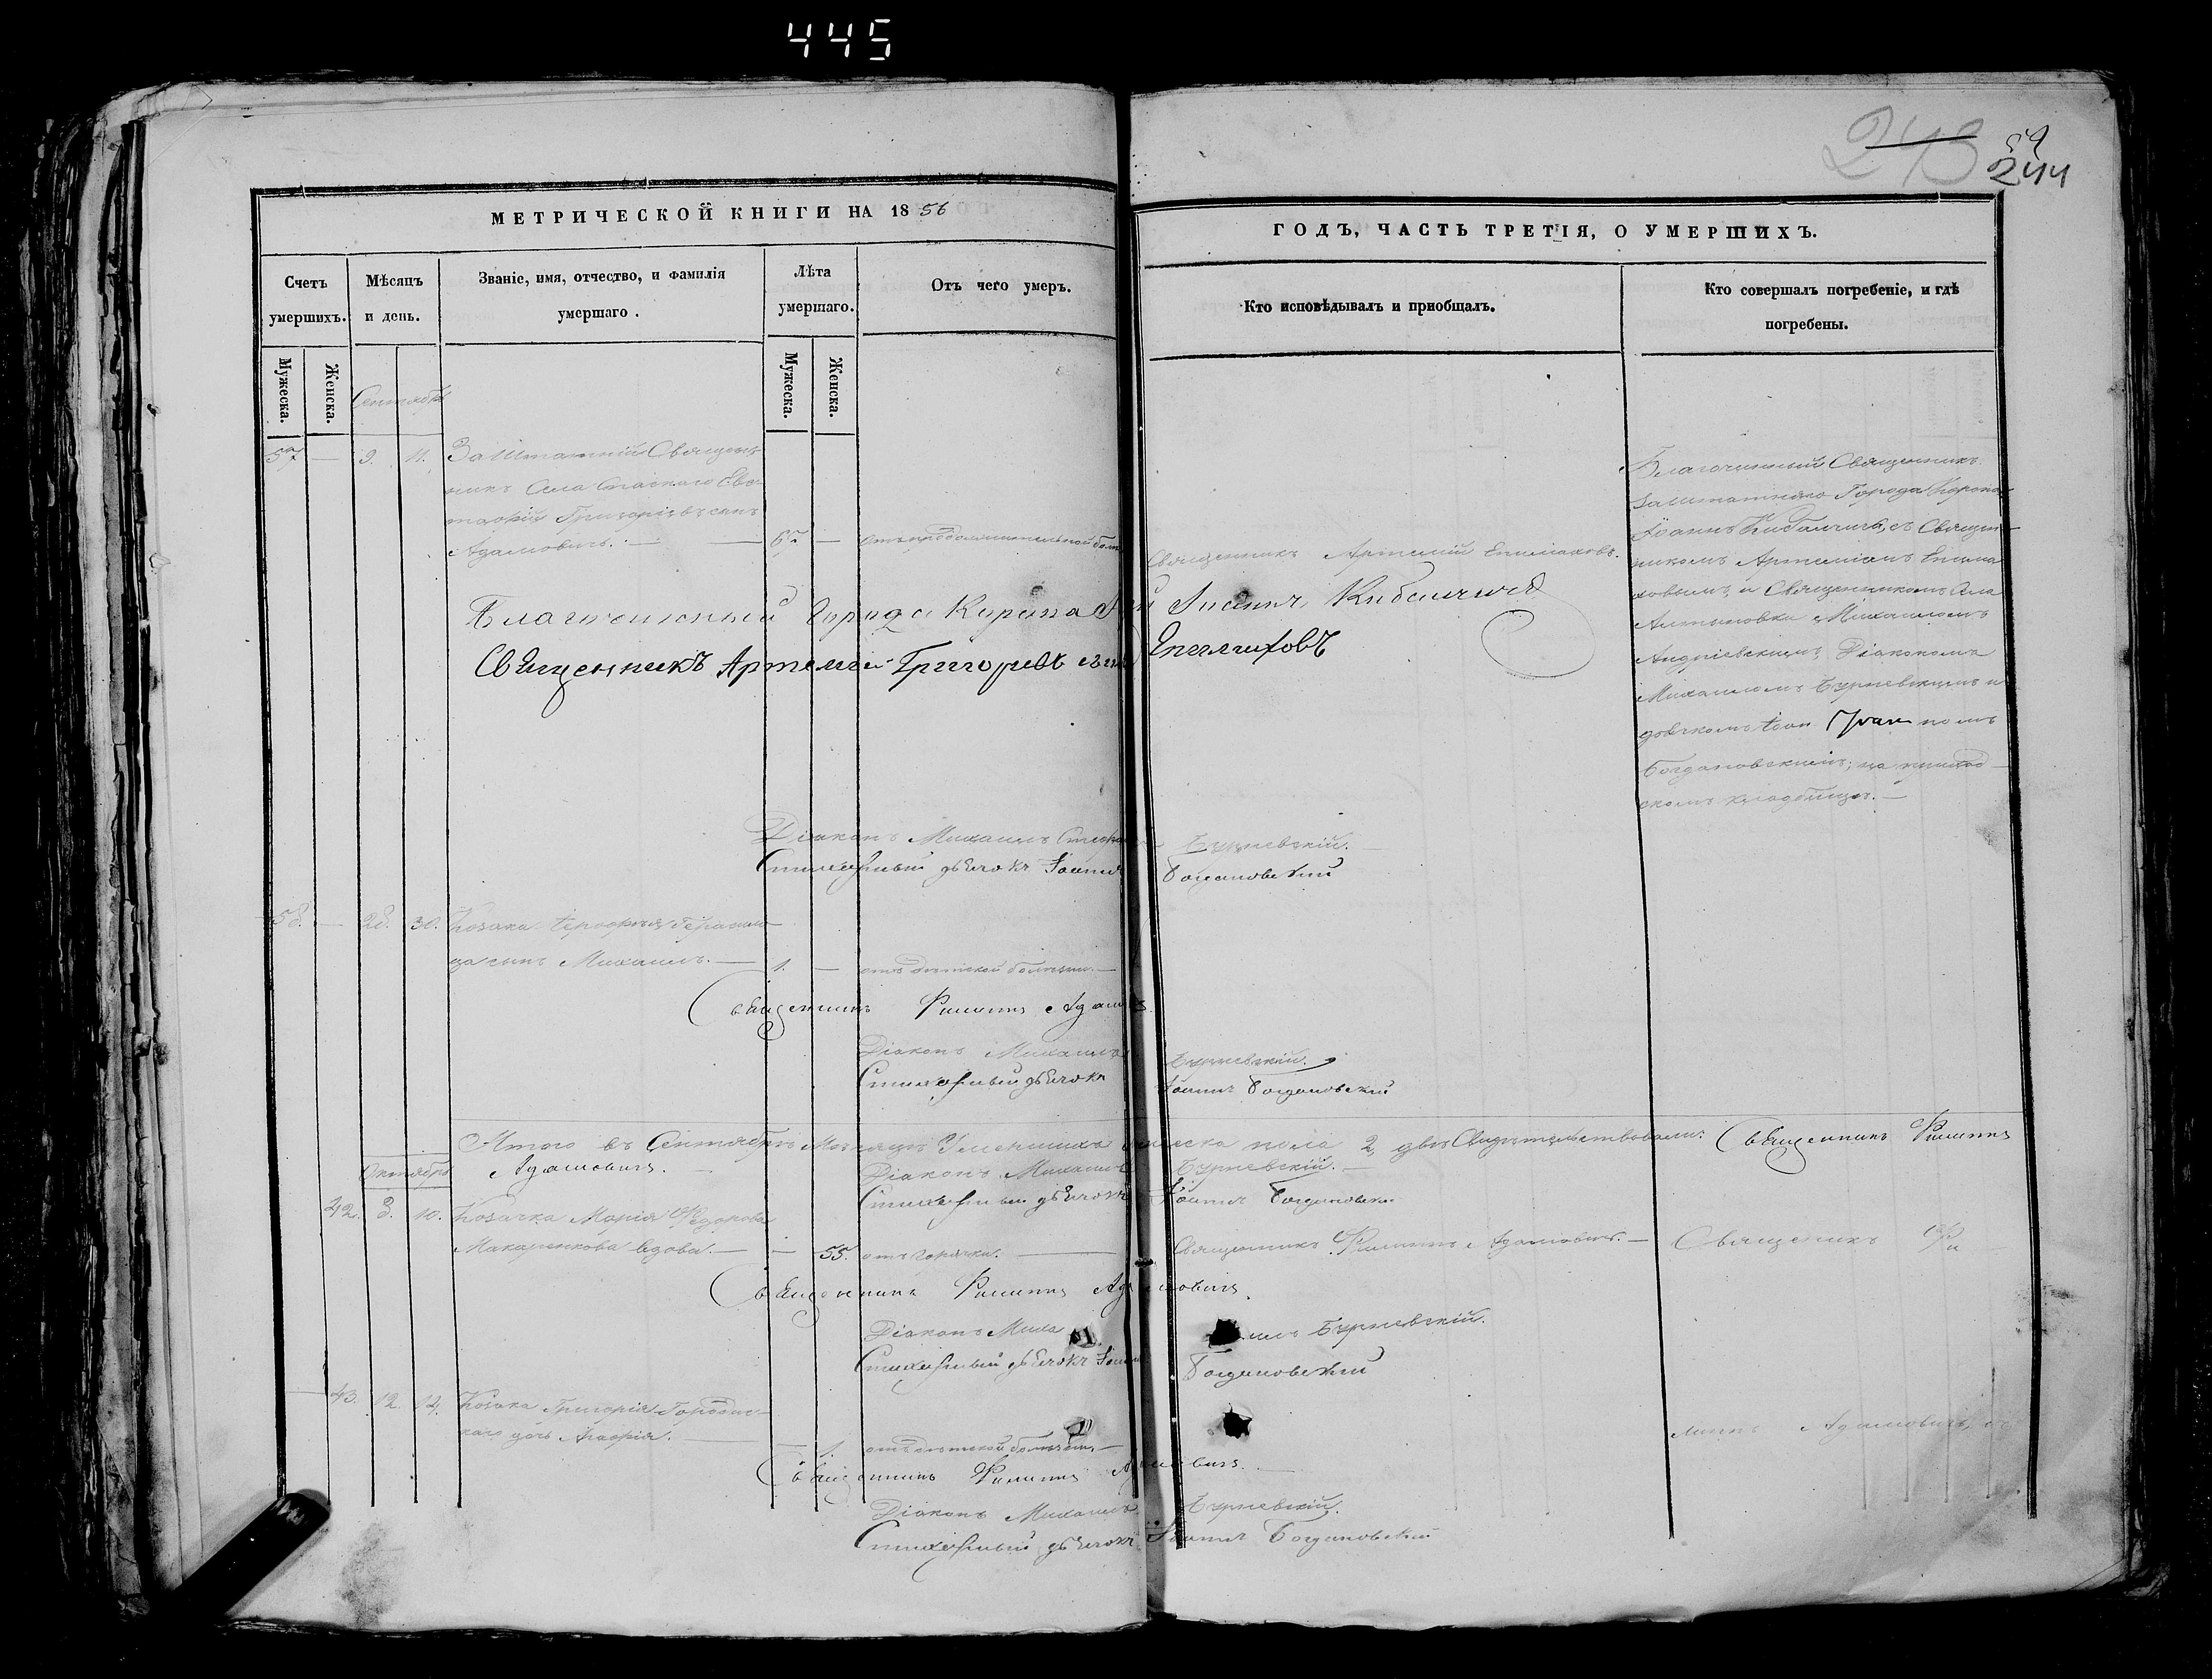 445
243
59
244
МЕТРИЧЕСКОЙ КНИГИ НА 1856
ГОДЪ, ЧАСТЬ ТРЕТІЯ, О УМЕРШИХЪ.
Счетъ
умершихъ.
Мѣсяцъ
и день.
Званіе, имя, отчество, и фамилія
умершаго.
Лѣта
умершаго.
Отъ чего умеръ.
Кто исповѣдывалъ и приобщалъ.
Кто совершалъ погребеніе, и гдѣ
погребены.
Мужеска.
Женска.
Мужеска.
Женска.
Сентябрь
57 — 9. 11. Заштатній Священ
никъ Села Спаскаго Ев
Григоріевъ сынъ
Адамовичъ. — 67 —
Священникъ Артемій Епимаховъ.
Благочинный Священникъ
Заштатнаго Города Коропа
Іоаннъ Кибальчичъ, съ Священ-
никомъ Артеміемъ Епима
ховымъ, и Священникомъ Села
Алтыновки Михаиломъ
Андріевскимъ, Діакономъ
Михаиломъ Бурневскимъ и
дьячкомъ
Богдановскимъ, на приход-
скомъ кладбищѣ. —
Благочинный города Коропа Іоаннъ Кибальчичъ
Священникъ Артемій Григорьевъ сынъ Епимаховъ
Діаконъ Михаилъ Бурневскій.
Стихарный дьячокъ Іоаннъ Богдановскій
58. — 28. 30. Козака
сынъ Михаилъ. — 1. — отъ дѣтской болѣзни. —
Священникъ Филиппъ Адамовичъ
Діаконъ Михаилъ Бурневскій.
Стихарный дьячокъ Іоаннъ Богдановскій
Итого въ Сентябрѣ Мѣсяцѣ Умершихъ мужеска пола 2, два Свидѣтельствовали: Священникъ Филиппъ
Адамовичъ.
Діаконъ Михаилъ Бурневскій. —
Стихарный дьячокъ Іоаннъ Богдановскій
Октябрь
42. 3. 10. Козачка Марія Федорова
Макаренкова вдова. — — 55. отъ горячки. —
Священникъ Филиппъ Адамовичъ. —
Священикъ Фи
Священникъ Филиппъ Адамовичъ.
Діаконъ Михаилъ Бурневскій.
Стихарный дьячокъ Іоаннъ Богдановскій
43. 12. 14. Козака Григорія Городис
каго дочь — 1. отъ дѣтской болѣзни. —
липпъ Адамовичъ, съ
Священникъ Филиппъ Адамовичъ.
Діаконъ Михаилъ Бурневскій.
Стихарный дьячокъ Іоаннъ Богдановскій